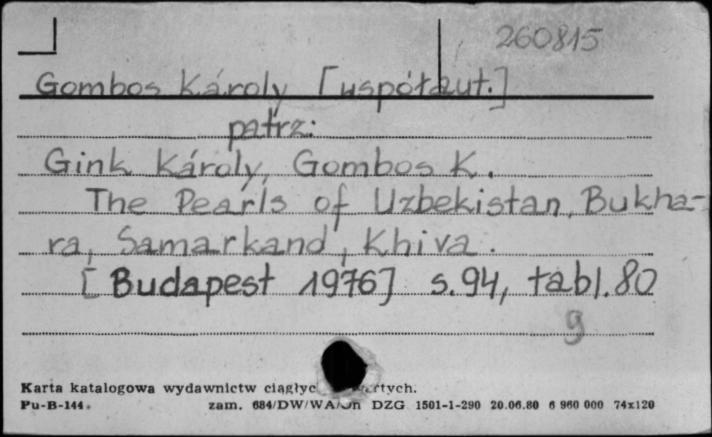 260815
Gombos Károly [współaut.]
patrz:
Gink Károly, Gombos K.
The Pearls of Uzbekistan, Bukha-
ra, Samarkand, Khiva.
[Budapest 1976] s.94, tabl.80
g
Karta katalogowa wydawnictw
Pu-B-144. zam. 684/DW/WA/Jn DZG 1501-1-290 20.06.80 6 960 000 74x120